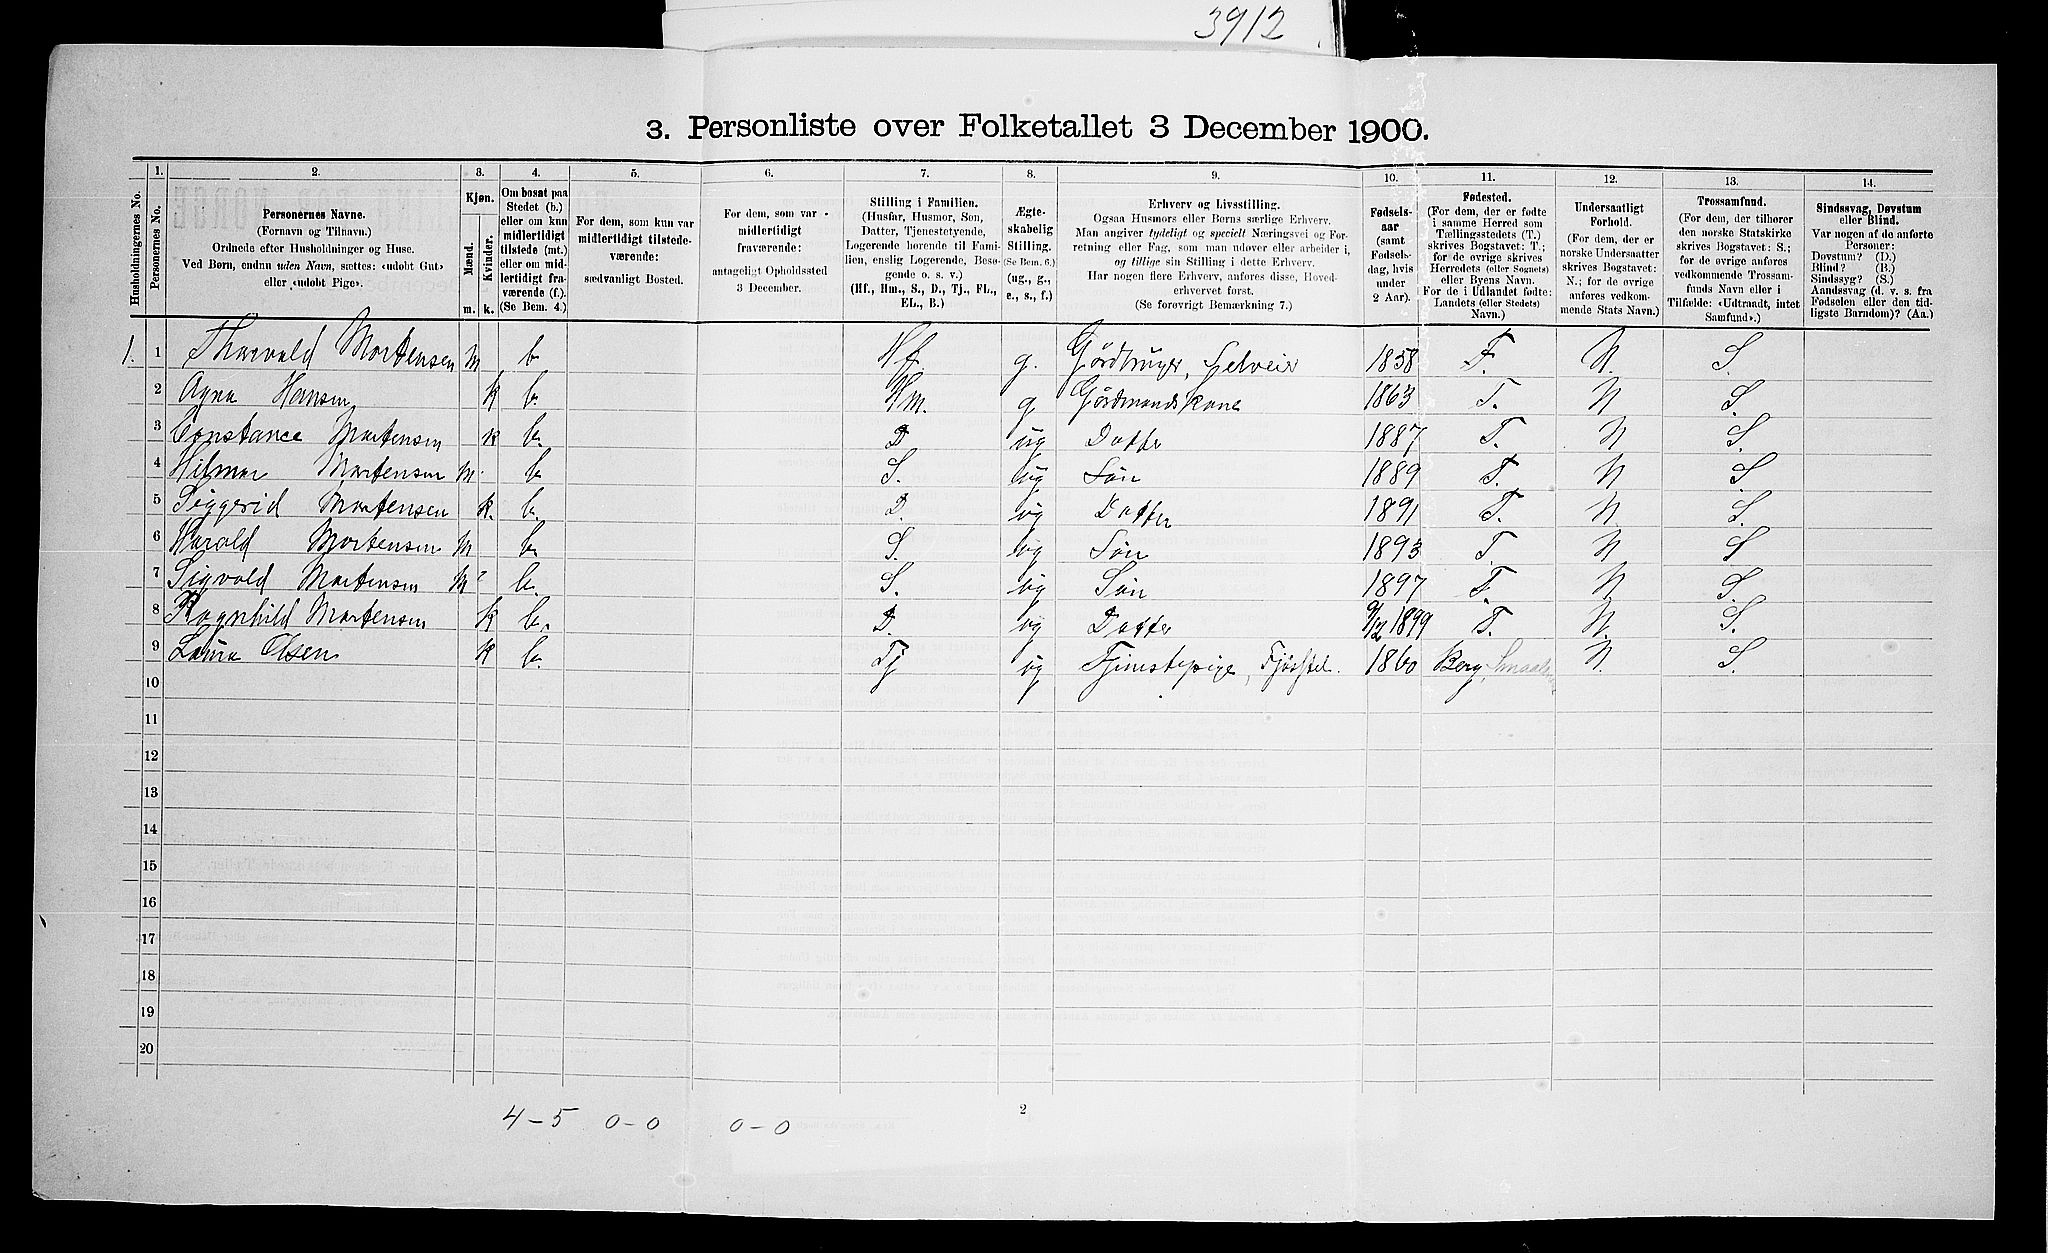 3912
3. Personliste over Folketallet 3 December 1900.
1. 2. 3. 4. 5. 6. 7. 8. 9. 10. 11. 12. 13. 14.
Husholdningernes No.
Personernes No.
Personernes Navne.
(Fornavn og Tilnavn.)
Ordnede efter Husholdninger og Huse.
Ved Børn, endnu uden Navn, sættes: «udobt Gut»
eller «udobt Pige».
Kjøn.
Mænd.
Kvinder.
m. k.
Om bosat paa
Stedet (b.)
eller om kun
midlertidigt
tilstede (mt.)
eller om mid-
lertidigt fra-
værende (f.).
(Se Bem. 4.)
For dem, som kun var
midlertidigt tilstede-
værende:
sædvanligt Bosted.
For dem, som var
midlertidigt
fraværende:
antageligt Opholdssted
3 December.
Stilling i Familien.
(Husfar, Husmor, Søn,
Datter, Tjenestetyende,
Logerende hørende til Fami-
lien, enslig Logerende, Besø-
gende o. s. v.)
(Hf., Hm., S., D., Tj., FL.,
EL., B.)
Ægte-
skabelig
Stilling.
(Se Bem. 6.)
(ug., g.,
e., s., f.)
Erhverv og Livsstilling.
Ogsaa Husmors eller Børns særlige Erhverv.
Man angiver tydeligt og specielt Næringsvei og For-
retning eller Fag, som man udøver eller arbeider i,
og tillige sin Stilling i dette Erhverv.
Har nogen flere Erhverv, anføres disse, Hoved-
erhvervet først.
(Se forøvrigt Bemærkning 7.)
Fødsels-
aar
(samt
Fødsels-
dag, hvis
under
2 Aar).
Fødested.
(For dem, der er fødte
i samme Herred som
Tællingsstedets (T.)
skrives Bogstavet: T.;
for de øvrige skrives
Herredets (eller Sognets)
eller Byens Navn.
For de i Udlandet fødte:
Landets (eller Stedets)
Navn.)
Undersaatligt
Forhold.
(For dem, der er
norske Undersaatter
skrives Bogstavet:
N.; for de øvrige
anføres vedkom-
mende Stats Navn.)
Trossamfund.
(For dem, der tilhører
den norske Statskirke
skrives Bogstavet: S.;
for de øvrige anføres
vedkommende Trossam-
funds Navn eller i
Tilfælde: «Udtraadt, intet
Samfund».)
Sindssvag, Døvstum
eller Blind.
Var nogen af de anførte
Personer:
Døvstum? (D.)
Blind? (B.)
Sindssyg? (S.)
Aandssvag (d. v. s. fra
Fødselen eller den tid-
ligste Barndom)? (Aa.)
1. 1 Thorvald Mortensen m b. Hf. g. Gårdbruger, Selveier 1858 T. N. S.
2 Agna Hansen k b. Hm. g Gårdmandskone 1863 T. N S.
3 Constance Mortensen k b. D ug Datter 1887 T. N S.
4 Hilmar Mortensen m. b. S. ug Søn 1889 T. N S.
5 Siggerid Mortensen k. b. D. ug Datter 1891 T. N. S.
6 Harald Mortensen m b. S. ug Søn 1893 T. N S
7 Sigvald Mortensen m b. S. ug Søn 1897 T. N S.
8 Ragnhild Mortensen k b. D. ug Datter 9/12 1899 T. N. S.
9 Laura Olsen k b. Tj ug Tjenestepige, Fjøsstel. 1860 Berg N. S.
10
11
12
13
14
15
16
17
18
19
20
2
4-5 0-0 0-0